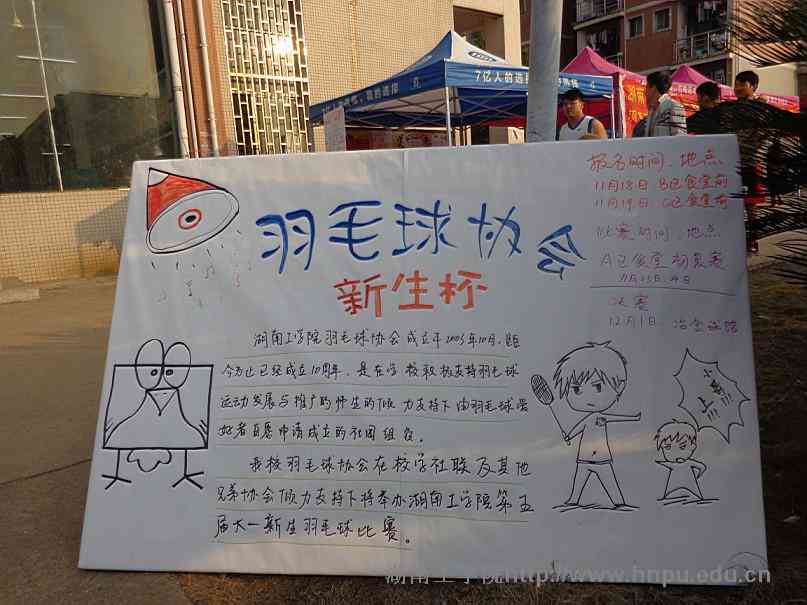 7亿人的选择
羽毛球协会
新生杯
湖南工学院羽毛球协会成立于2003年10月，距
今为止已经成立10周年，是在学校积极支持羽毛球
运动发展与推广的师生的倾力支持下由羽毛球爱
好者自愿申请成立的社团组织。
我校羽毛球协会在校学社联及其他
兄弟协会倾力支持下将举办湖南工学院第五
届大一新生羽毛球比赛。
报名时间、地点
11月18日 B区食堂前
11月19日 C区食堂前
比赛时间、地点
A区食堂 初复赛
决赛
12月1日
上!!!
湖南工学院http://www.hnpu.edu.cn